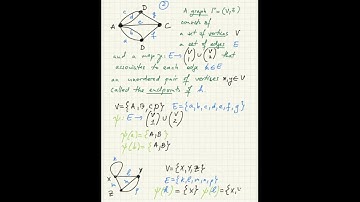 ②
A graph Γ = (V, E)
consists of
a set of vertices V
a set of edges E
and a map ψ: E → (V 1) ∪ (V 2) that
associates to each edge k ∈ E
an unordered pair of vertices x, y ∈ V
called the endpoints of k.
V = {A, B, C, D} E = {a, b, c, d, e, f, g}
ψ: E → (V 1) ∪ (V 2)
ψ(a) = {A, B}
ψ(b) = {A, B}
V = {X, Y, Z}
E = {k, l, m, n, p}
ψ(k) = {X} ψ(l) = {X,